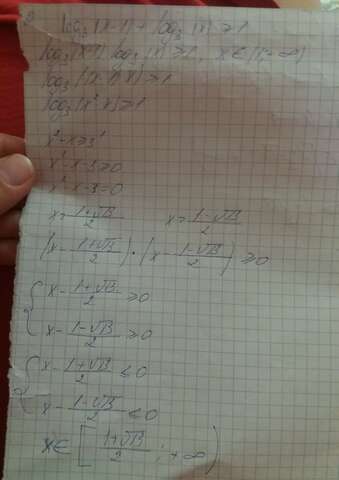 log₃(x-1) + log₃(x) ≥ 1
log₃(x-1) + log₃(x) ≥ 1, x ∈ (1; +∞)
log₃((x-1)·x) ≥ 1
log₃(x²-x) ≥ 1
x²-x ≥ 3¹
x²-x-3 ≥ 0
x²-x-3 = 0
x = (1+√13)/2 x = (1-√13)/2
(x - (1+√13)/2) · (x - (1-√13)/2) ≥ 0
{ x - (1+√13)/2 ≥ 0
x - (1-√13)/2 ≥ 0
{ x - (1+√13)/2 ≤ 0
x - (1-√13)/2 ≤ 0
x ∈ [(1+√13)/2 ; +∞)